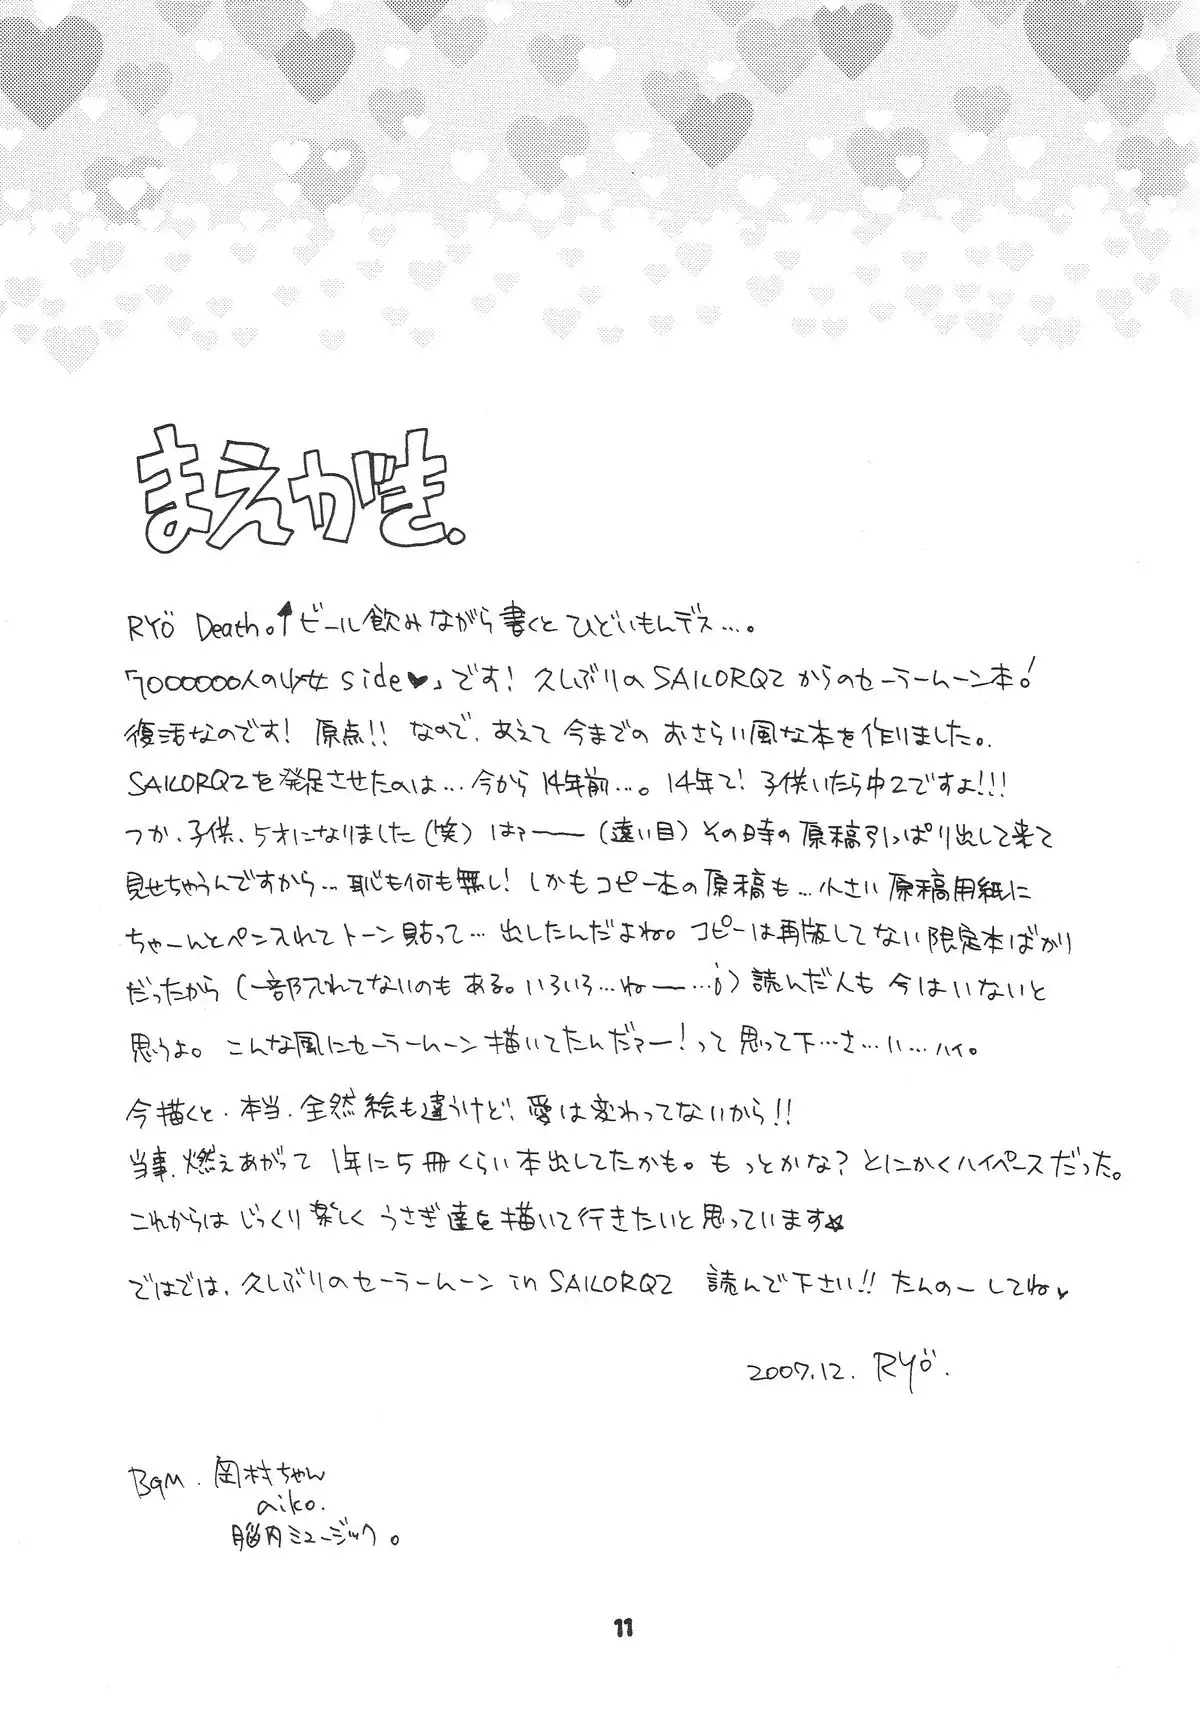 まえがき.
RYÖ Death。↑ビール飲みながら書くとひどいもんデス…。
「7000000人の少女side♥」です! 久しぶりのSAILORQ2からのセーラームーン本!
復活なのです! 原点!! なので、あえて今までのおさらい風な本を作りました。
SAILORQ2を発足させたのは…今から14年前…。14年て! 子供いたら中2ですよ!!!
つか、子供、5才になりました(笑) はァーー(遠い目)その時の原稿引っぱり出して来て
見せちゃうんですから…恥も何も無し! しかもコピー本の原稿も…小さい原稿用紙に
ちゃーんとペン入れてトーン貼って…出したんだよね。コピーは再版してない限定本ばかり
だったから(一部入れてないのもある。いろいろ…ねー…)読んだ人も今はいないと
思うよ。こんな風にセーラームーン描いてたんだァー!って思って下…さ…い…ハイ。
今描くと、本当、全然絵も違うけど、愛は変わってないから!!
当事、燃えあがって1年に5冊くらい本出してたかも。もっとかな? とにかくハイペースだった。
これからはじっくり楽しくうさぎ達を描いて行きたいと思っています☆
ではでは、久しぶりのセーラームーン in SAILORQ2 読んで下さい!! たんのーしてね♥
2007.12. RYÖ.
BGM. 岡村ちゃん
aiko.
脳内ミュージック。
11